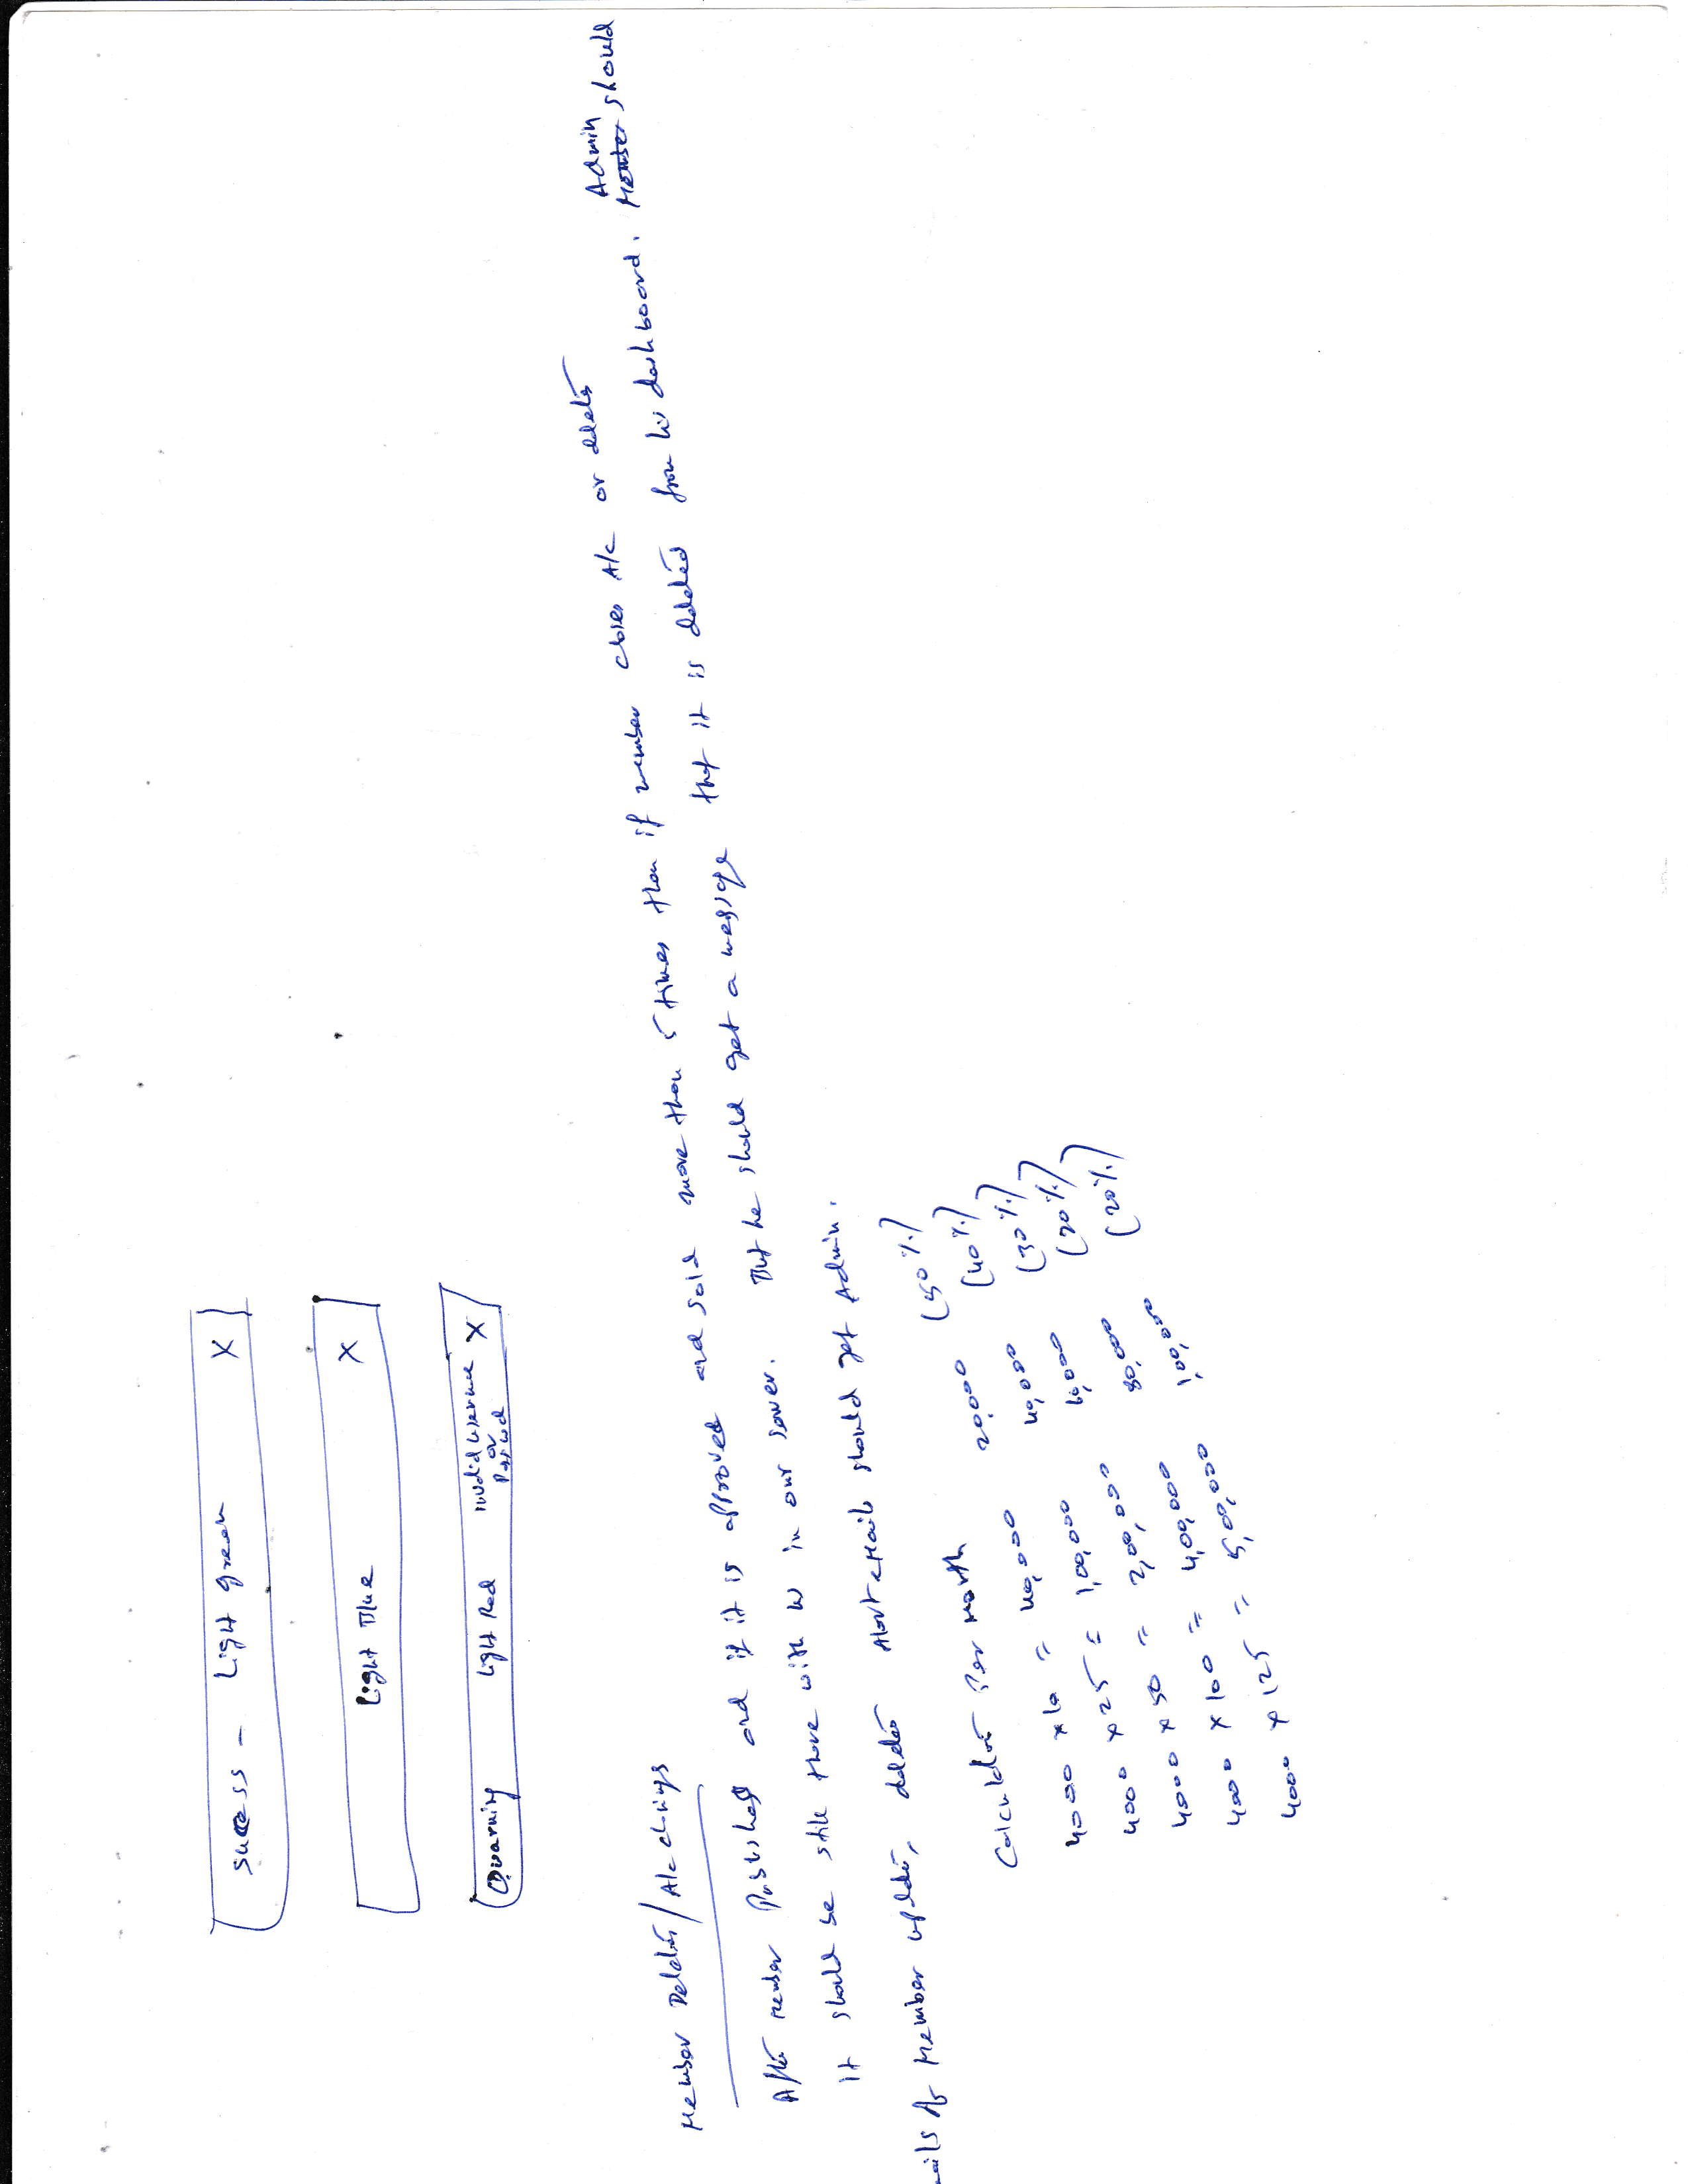 Success - Light green X
Light Blue X
Warning Light Red Invalid username or X
Member Delets / A/c closings
After member Published and if it is approved and sold more than 5 times then if member closes A/c or delets
it should be still there with us in our server. But he should get a message that it is deleted from his dashboard. Admin Member should
ails As Member update, deletes Alert emails should get Admin.
Calculator Per Month
4000 x 10 = 40,000 20,000 (50%)
4000 x 25 = 1,00,000 40,000 (40%)
4000 x 50 = 2,00,000 60,000 (30%)
4000 x 100 = 4,00,000 80,000 (20%)
4000 x 125 = 5,00,000 1,00,000 (20%)